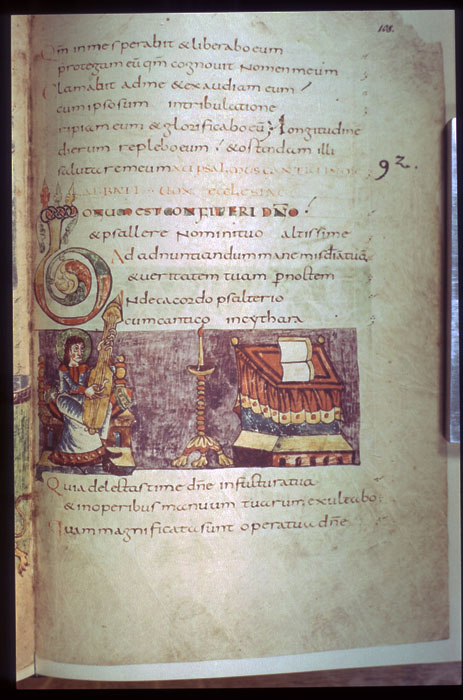 108.
Qm in me sperabit & liberabo eum
protegam eū qm cognovit nomen meum
Clamabit ad me & exaudiam eum
cum ipso sum in tribulatione
eripiam eum & glorificabo eū; Longitudine
dierum replebo eum & ostendam illi
salutare meum
92.
Bonum est confiteri dn̄o
& psallere nomini tuo altissime
Ad adnuntiandum mane misd̄ia tuā
& veritatem tuam p noctem
In decacordo psalterio
cum cantico in cythara
Quia delectasti me dn̄e in factura tua
& in operibus manuum tuarum exultabo
Quam magnificata sunt opera tua dn̄e